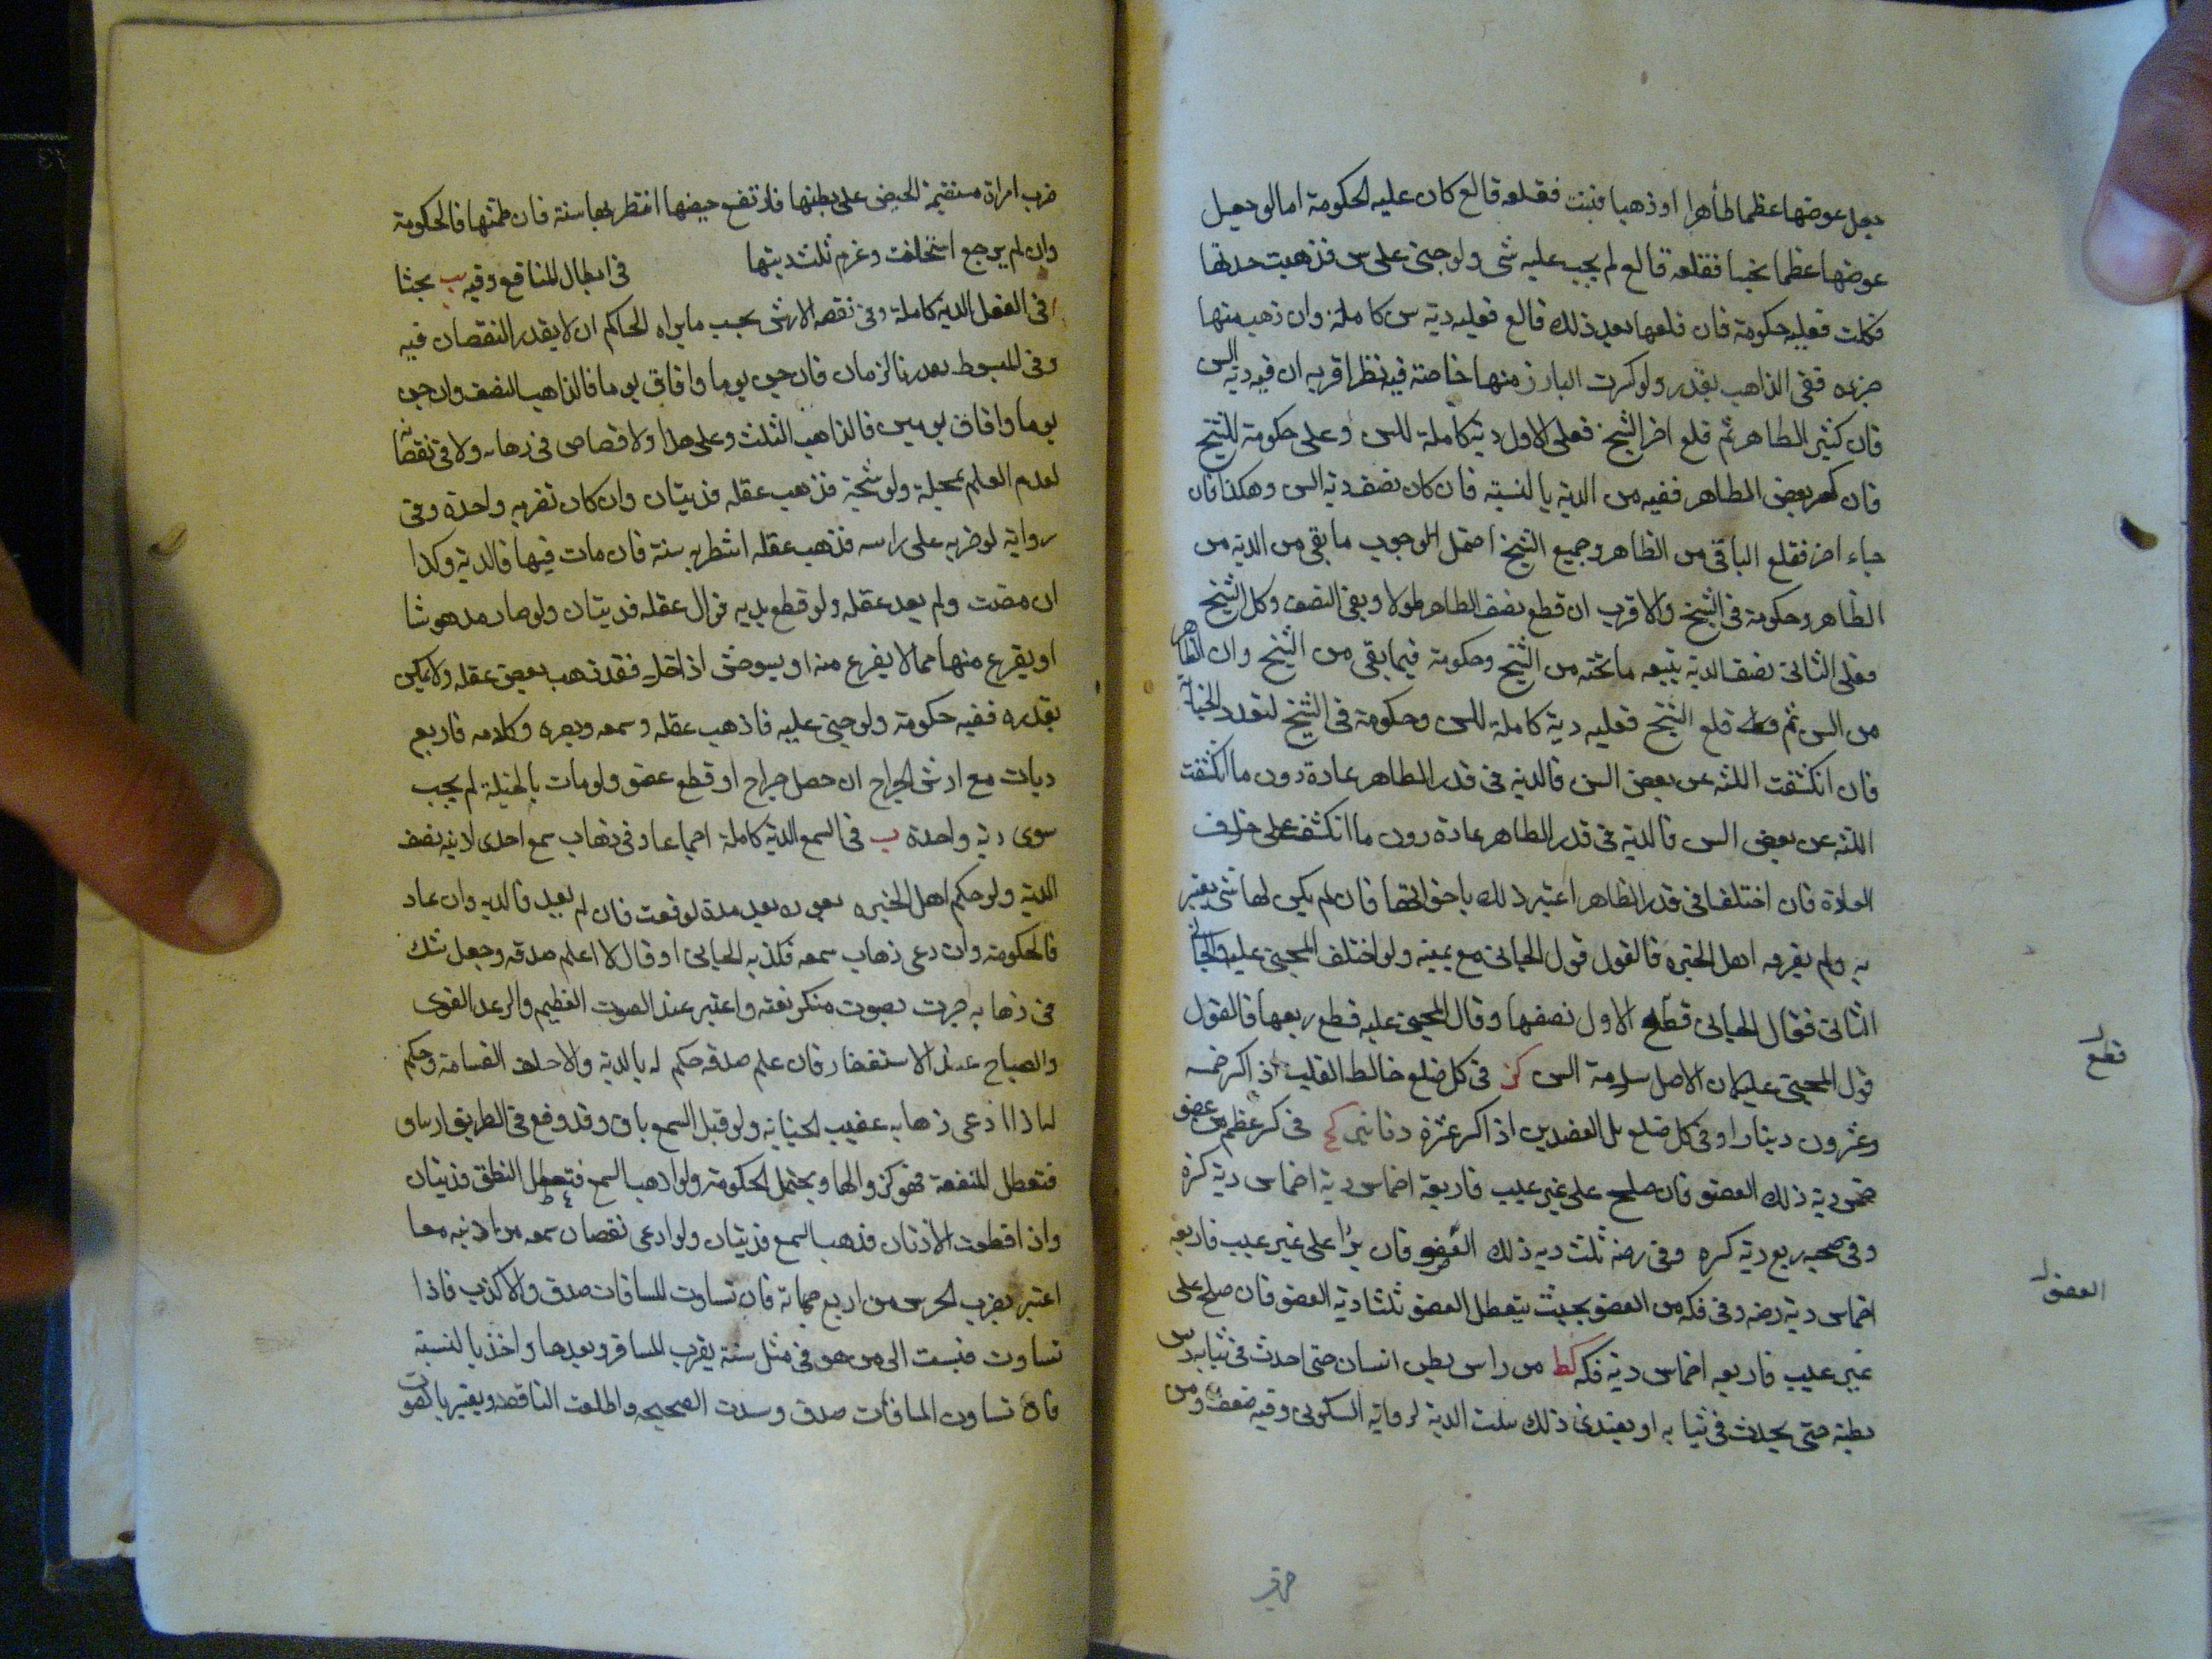 جعل عوضها عظما طاهرا او ذهبا فنبت فقلعه قالع كان عليه الحكومة اما لو جعل
عوضها عظما نجسا فقلعه قالع لم يجب عليه شى ولو جنى على سن فذهبت حدتها
فكلت فعليه حكومة فان قلعها بعد ذلك قالع فعليه دية سن كاملة وان ذهب منها
جزءه ففى الذاهب بقدره ولو كسرت البارز منها خاصة فيه نظر اقربه ان فيه دية السن
فان كسر الظاهر ثم قلع اخر السنخ فعلى الاول دية كاملة للسن وعلى حكومة للسنخ
فان كسر بعض الظاهر ففيه من الدية بالنسبة فان كان نصف دية السن وهكذا فان
جاء اخر فقلع الباقى من الظاهر وجميع السنخ احتمل الوجوب ما بقى من الدية من
الظاهر وحكومة فى السنخ والاقرب ان قطع نصف الظاهر طولا وبقى النصف وكل السنخ
فعلى الثانى نصف الدية يتبعه ما تحته من السنخ وحكومة فيما بقى من السنخ وان الظاهر
من السن ثم قلع السنخ فعليه دية كاملة للسن وحكومة فى السنخ لتعدد الجناية
فان انكشفت اللثه عن بعض السن فالدية فى قدر الظاهر عادة دون ما انكشفت
اللثه عن بعض السن فالدية فى قدر الظاهر عادة دون ما انكشف على خلاف
العادة فان اختلفا فى قدر الظاهر اعتبر ذلك باخواتها فان لم يكن لها شى يعتبر
به ولم يعرفه اهل الخبره فالقول قول الجانى مع يمينه ولو اختلف المجنى عليه والجانى
الثانى فقال الجانى قطع الاول نصفها وقال المجنى عليه قطع ربعها فالقول
قول المجنى عليه لان الاصل سلامة السن كز فى كل ضلع خالط القلب اذ اكسر خمسه
وعشرون دينارا وفى كل ضلع يلى العضدين اذ اكسر عشرة دنانير كح فى كسر عظم من عضو
خمس دية ذلك العضو فان صلح على غير عيب فاربعة اخماس دية اخماس دية كسره
وفى موضحه ربع دية كسره وفى رضه ثلث ديه ذلك العضو فان برا على غير عيب فاربعه
اخماس دية رضه وفى فكه من العضو بحيث يتعطل العضو ثلثا دية العضو فان صلح على
غير عيب فاربعه اخماس دية فكه كط من داس بطن انسان حتى احدث فى ثيابه ديس
بطنه حتى يحدث فى ثيابه او يفتدى ذلك بثلث الدية لرواية السكونى وفيه ضعف ومن
قطع
العضو
ضرب امراة مستقيمة الحيض على بطنها فارتفع حيضها انتظر بها سنة فان طمثها فالحكومة
وان لم يرجع استحلفت وغرم ثلث ديتها فى ابطال المنافع وفيه يب بحثا
ا فى العقل الدية كاملة وفى نقصه الارش بحسب ما يراه الحاكم ان لا يقدر النقصان فيه
وفى المبسوط يقدر بالزمان فان جن يوما وافاق يوما فالذاهب النصف وان جن
يوما وافاق يومين فالذاهب الثلث وعلى هذا ولا قصاص فى ذهابه ولا فى نقصانه
لعدم العلم بمحله ولو شجه فذهب عقله فديتان وان كان بضربه واحدة وفى
رواية لو ضربه على راسه فذهب عقله انتظر به سنة فان مات فيها فالدية وكذا
ان مضت ولم يعد عقله ولو قطع يديه فزال عقله فديتان ولو صار مدهوشا
او يفزع منها مما لا يفزع منه او يستوحش اذا خلا فقد ذهب بعض عقله ولا يمكن
بقدره ففيه حكومة ولو جنى عليه فاذهب عقله وسمعه وبصره وكلامه فاربع
ديات مع ارش الجراح ان حصل جراح او قطع عضو ولو مات بالجناية لم يجب
سوى دية واحدة ب فى السمع الدية كاملة اجماعا وفى ذهاب سمع احدى الاذنين نصف
الدية ولو حكم اهل الخبره بعوده بعد مدة توقعت فان لم يعد فالديه وان عاد
فالحكومة وان دعى ذهاب سمعه فكذبه الجانى او قال لا اعلم صدقه وجعل شك
فى ذهابه جربت بصوت منكر بغته واعتبر عند الصوت العظيم والرعد القوى
والصياح عند الاستغفار فان علم صدقه حكم له بالدية والا حلف القسامة وحكم
له اذا ادعى ذهابه عقيب الجنايه ولو قيل السمع باق وقد وقع فى الطريق ارتتاق
فتعطل المنفعة فهو كزوالها ويحتمل الحكومة ولو اذهب السمع فتعطل النطق فديتان
واذ اقطعت الاذنان فذهب السمع فديتان ولو ادعى نقصان سمعه من اذنيه معا
اعتبر بضرب الجرس من اربع جهاته فان تساوت المسافات صدق والا كذب فاذا
تساوت فنسبت الى من هو فى مثل سنه يقرب المسافه وبعدها واخذ بالنسبة
فان تساوت المسافات صدق وسدت الصحيحه واطلعت الناقصه ويعتبر بالصوت